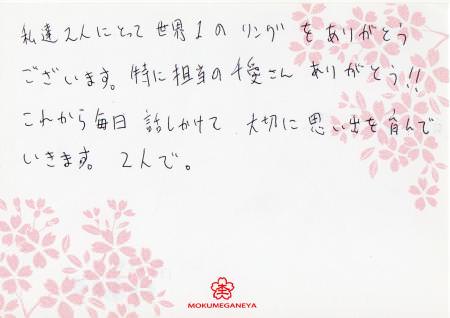 私達2人にとって世界1のリングをありがとう
ございます。特に担当の千愛さんありがとう!!
これから毎日話しかけて大切に思い出を育んで
いきます。2人で。
MOKUMEGANEYA